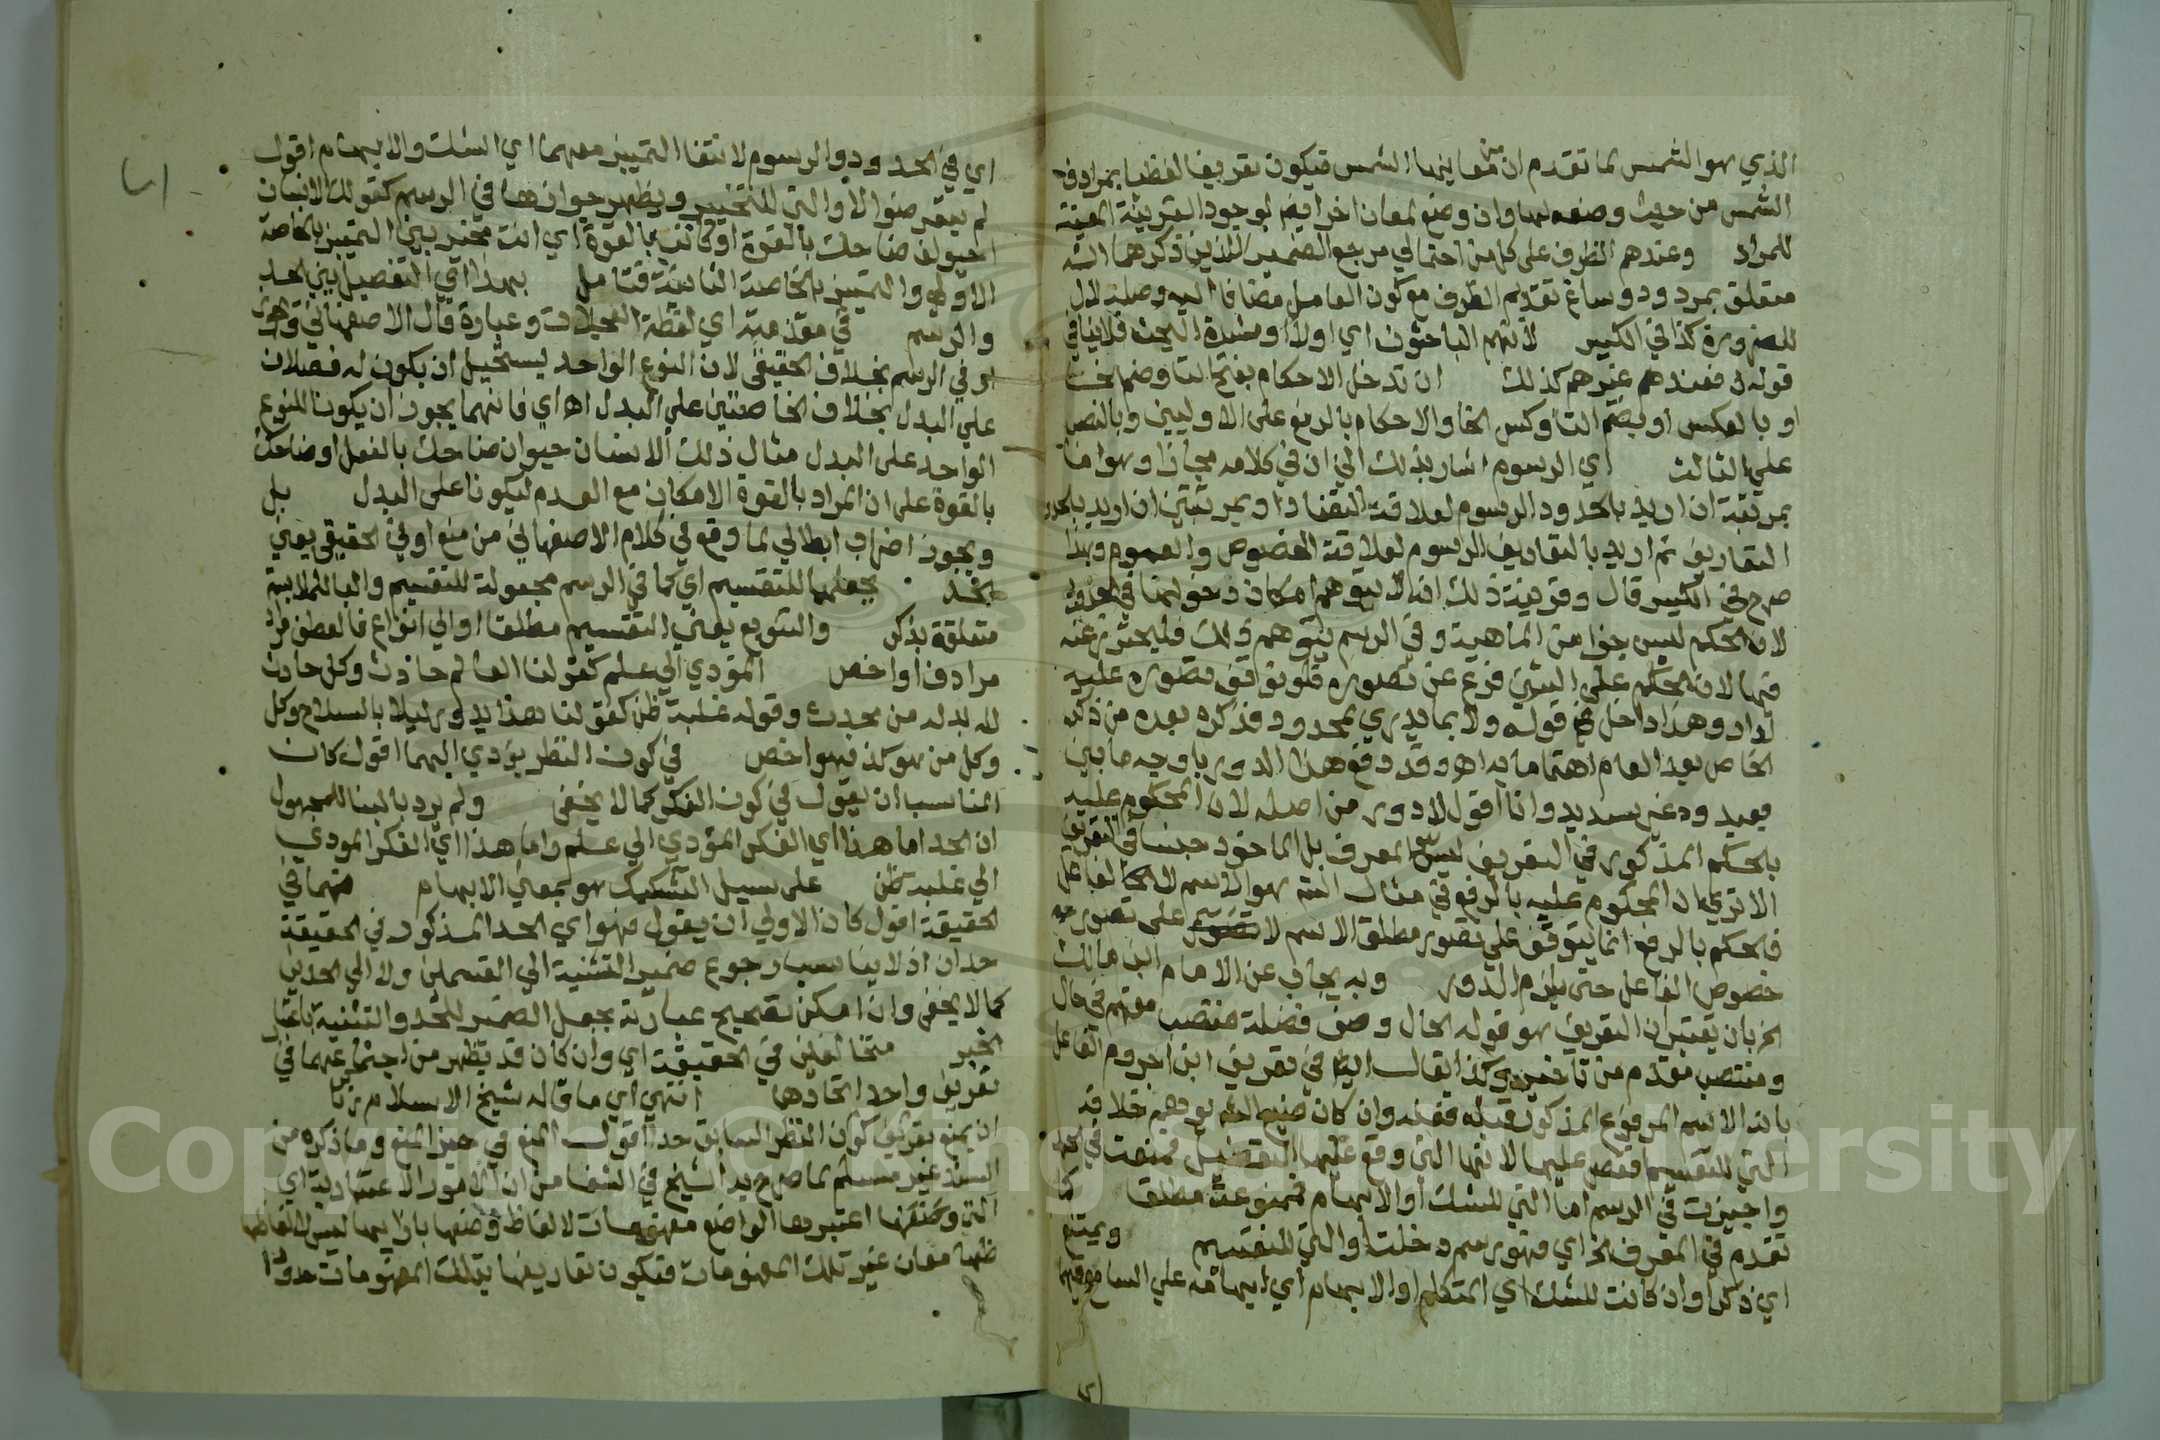 الذي هو الشمس لما تقدم ان من معاينها الشمس فيكون تعريفا لفظيا بمرادف
الشمس من حيث وضعه لها وان وضع لمعان اخر ايضا لوجود القرينة المعينة
للمراد وعندهم الظرف على كل من احتمالي مرجع الضمير اللذين ذكرهما الش
متعلق بمردود وساغ تقديم الظرف مع كون العامل مضافا اليه وصلة لال
للضرورة كذا في الكبير لانهم الباحثون اي اولا او مشدة البحث فلا ينافي
قوله فعندهم غيرهم كذلك ان تدخل الاحكام بفتح التا وضم الخا
او بالعكس او بضم التا وكسر الخا والاحكام بالرفع على الاوليين وبالنصب
علي الثالث اي الرسوم اشار بذلك الي ان في كلامه مجازا وهو اما
بمرتبة ان اريد بالحدود الرسوم لعلاقة التضاد او بمرتبتين ان اريد بالحدود
التعاريف ثم اريد بالتعاريف الرسوم لعلاقة الخصوص والعموم وبهذا
صرح في الكبير قال وقرينة ذلك انه لا يتوهم امكان دخولها في الحدود
لان الحكم ليس جزا من الماهية وفي الرسم يتوهم ذلك فليحترز عنه
فيها لان الحكم على الشيء فرع عن تصوره فلو توقف تصوره عليه
لدار وهذا داخل في قوله ولا بما يدري بمحدود فذكره بعده من ذكر
الخاص بعد العام اهتماما به اه وقد دفع هذا الدور باوجه ما بين
بعيد وغير سديد وانا اقول لا دور من اصله لان المحكوم عليه
بالحكم المذكور في التعريف ليس المعرف بل الماخوذ جنسا في التعريف
الا تري ان المحكوم عليه بالرفع في مثال الش هو الاسم لا الفاعل
فالحكم بالرفع انما يتوقف على تصور مطلق الاسم لا على تصور
خصوص الفاعل حتى يلزم الدور وبه يجاب عن الامام ابن مالك
الخ بان يعتبر ان التعريف هو قوله الحال وصف فضلة منتصب مفهم في حال
ومنتصب مقدم من تاخير وكذا يقال ايضا في تعريف ابن اجروم الفاعل
بانه الاسم المرفوع المذكور قبله فعله وان كان صنيع الش يوهم خلافه
التي للتقسيم فنص عليها لانها التي وقع عليها التفصيل فمنعت في الحد
واجيزت في الرسم اما التي للشك او الابهام فممنوعة مطلقا كما
تقدم في المعرف الخ اي فهو رسم دخلت او التي للتقسيم ويمتنع
اي ذكر او ان كانت للشك اي المتكلم او الابهام اي ايهامه علي السامع فيهما
اي في الحدود والرسوم لانتفا التمييز معهما اي الشك والابهام اقول
لم يعترضوا لاو التي للتخيير ويظهر جوازها في الرسم كقولك الانسان
حيوان ضاحك بالقوة او كاتب بالقوة اي انت مخير بين التمييز بالخاصة
الاولى والتمييز بالخاصة الثانية فتامل بهذا اي التفصيل بين الحد
والرسم في مقدمته اي لقطة العجلان وعبارة قال الاصفهاني وتجوز
او في الرسم بخلاف الحقيقي لان النوع الواحد يستحيل ان يكون له فصلان
علي البدل بخلاف الخاصتين علي البدل اه اي فانهما يجوز ان يكونا للنوع
الواحد على البدل مثال ذلك الانسان حيوان ضاحك بالفعل او ضاحك
بالقوة على ان المراد بالقوة الامكان مع العدم ليكونا على البدل بل
ويجوز اضراب ابطالي لما وقع في كلام الاصفهاني من منع او في الحقيقي يعني
الحد بجعلها للتقسيم اي كما في الرسم مجعولة للتقسيم والبا للملابسة
متعلقة بذكر والتنويع يعني التقسيم مطلقا او الي انواع فالعطف
مرادف او اخص المؤدي الي علم كقولنا العالم حادث وكل حادث
لا بد له من محدث وقوله غلبة ظن كقولنا هذا يدور ليلا بالسلاح وكل
وكل من هو كذا فهو اخص في كون النظر يؤدي اليهما اقول كان
المناسب ان يقول في كون الفكر كما لا يخفى ولم يرد بالبنا للمجهول
ان الحد اما هذا اي الفكر المؤدي الي علم واما هذا اي الفكر المودي
الي غلبة ظن على سبيل التشكيك هو بمعني الابهام فهما في
الحقيقة اقول كان الاولي ان يقول فهو اي الحد المذكور في الحقيقة
حدان اذ لا يناسب رجوع ضمير التثنية الي القسمين ولا الي الحدين
كما لا يخفى وان امكن تصحيح عبارته بجعل الضمير للحد والتثنية باعتبار
الخبر متخالفين في الحقيقة اي وان كان قد يظهر من اجتماعهما في
تعريف واحد اتحادهما انتهي اي ما قاله شيخ الاسلام زكريا
ان يمنع بقريتي كون النظر السابق حدا اقول المنع في حيز المنع وما ذكره من
السند غير مسلم لما صرح به الشيخ في الشفا من ان الامور الاعتبارية اي
التي اعتبرها الواضع مفهومات لالفاظ وضعها بازايها ليس لالفاظها
معان غير تلك المفهومات فتكون تعاريفها بتلك المفهومات حدودا